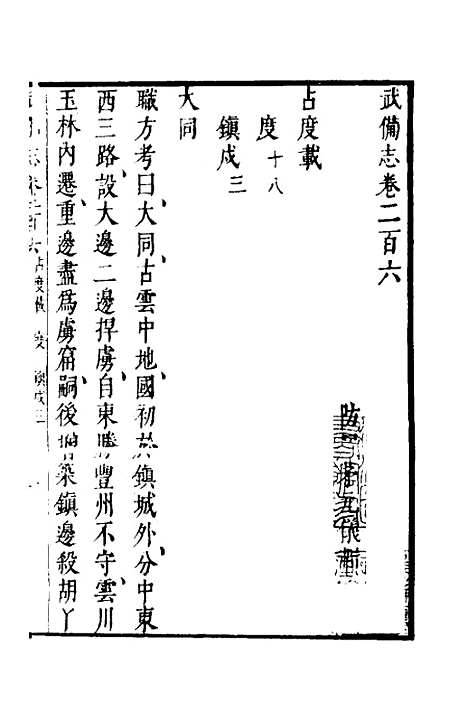 武備志卷二百六
占度載
度十八
鎮戍三
大同
職方考曰、大同、古雲中地、國初於鎮城外、分中東
西三路、設大邊二邊捍虜、自東勝豐州不守、雲川
玉林內遷、重邊盡為虜窟、嗣後增築鎮邊殺胡丫
占度載 度 鎮戍三 一